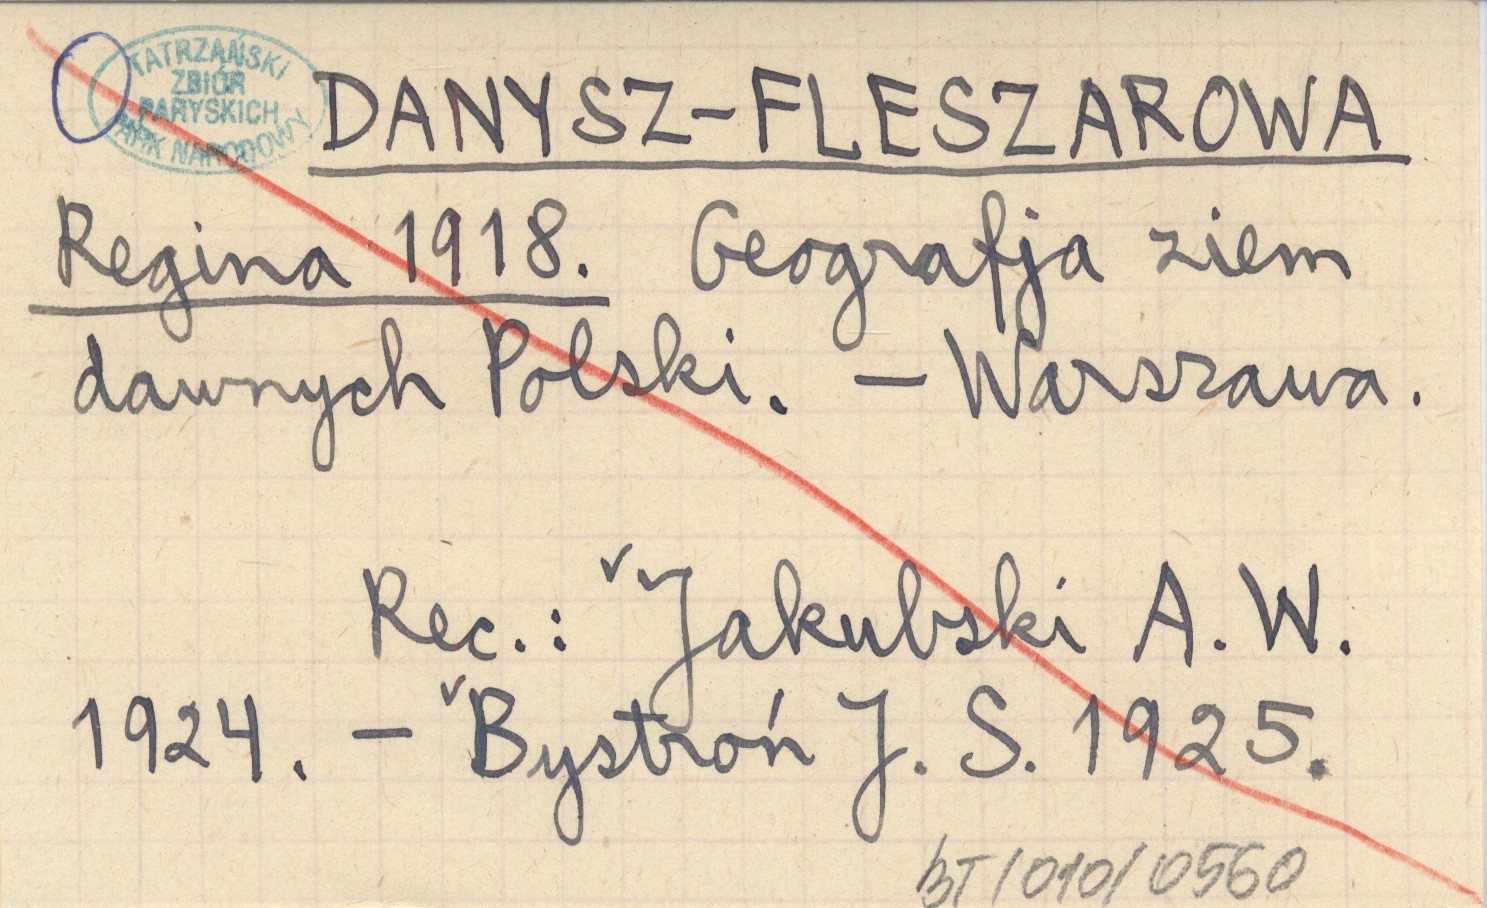 TATRZAŃSKI
ZBIÓR
PARYSKICH
PARK NARODOWY
DANYSZ-FLESZAROWA
Regina 1918. Geografja ziem
dawnych Polski. – Warszawa.
Rec.: Jakubski A. W.
1924. – Bystroń J. S. 1925.
BT/010/0560